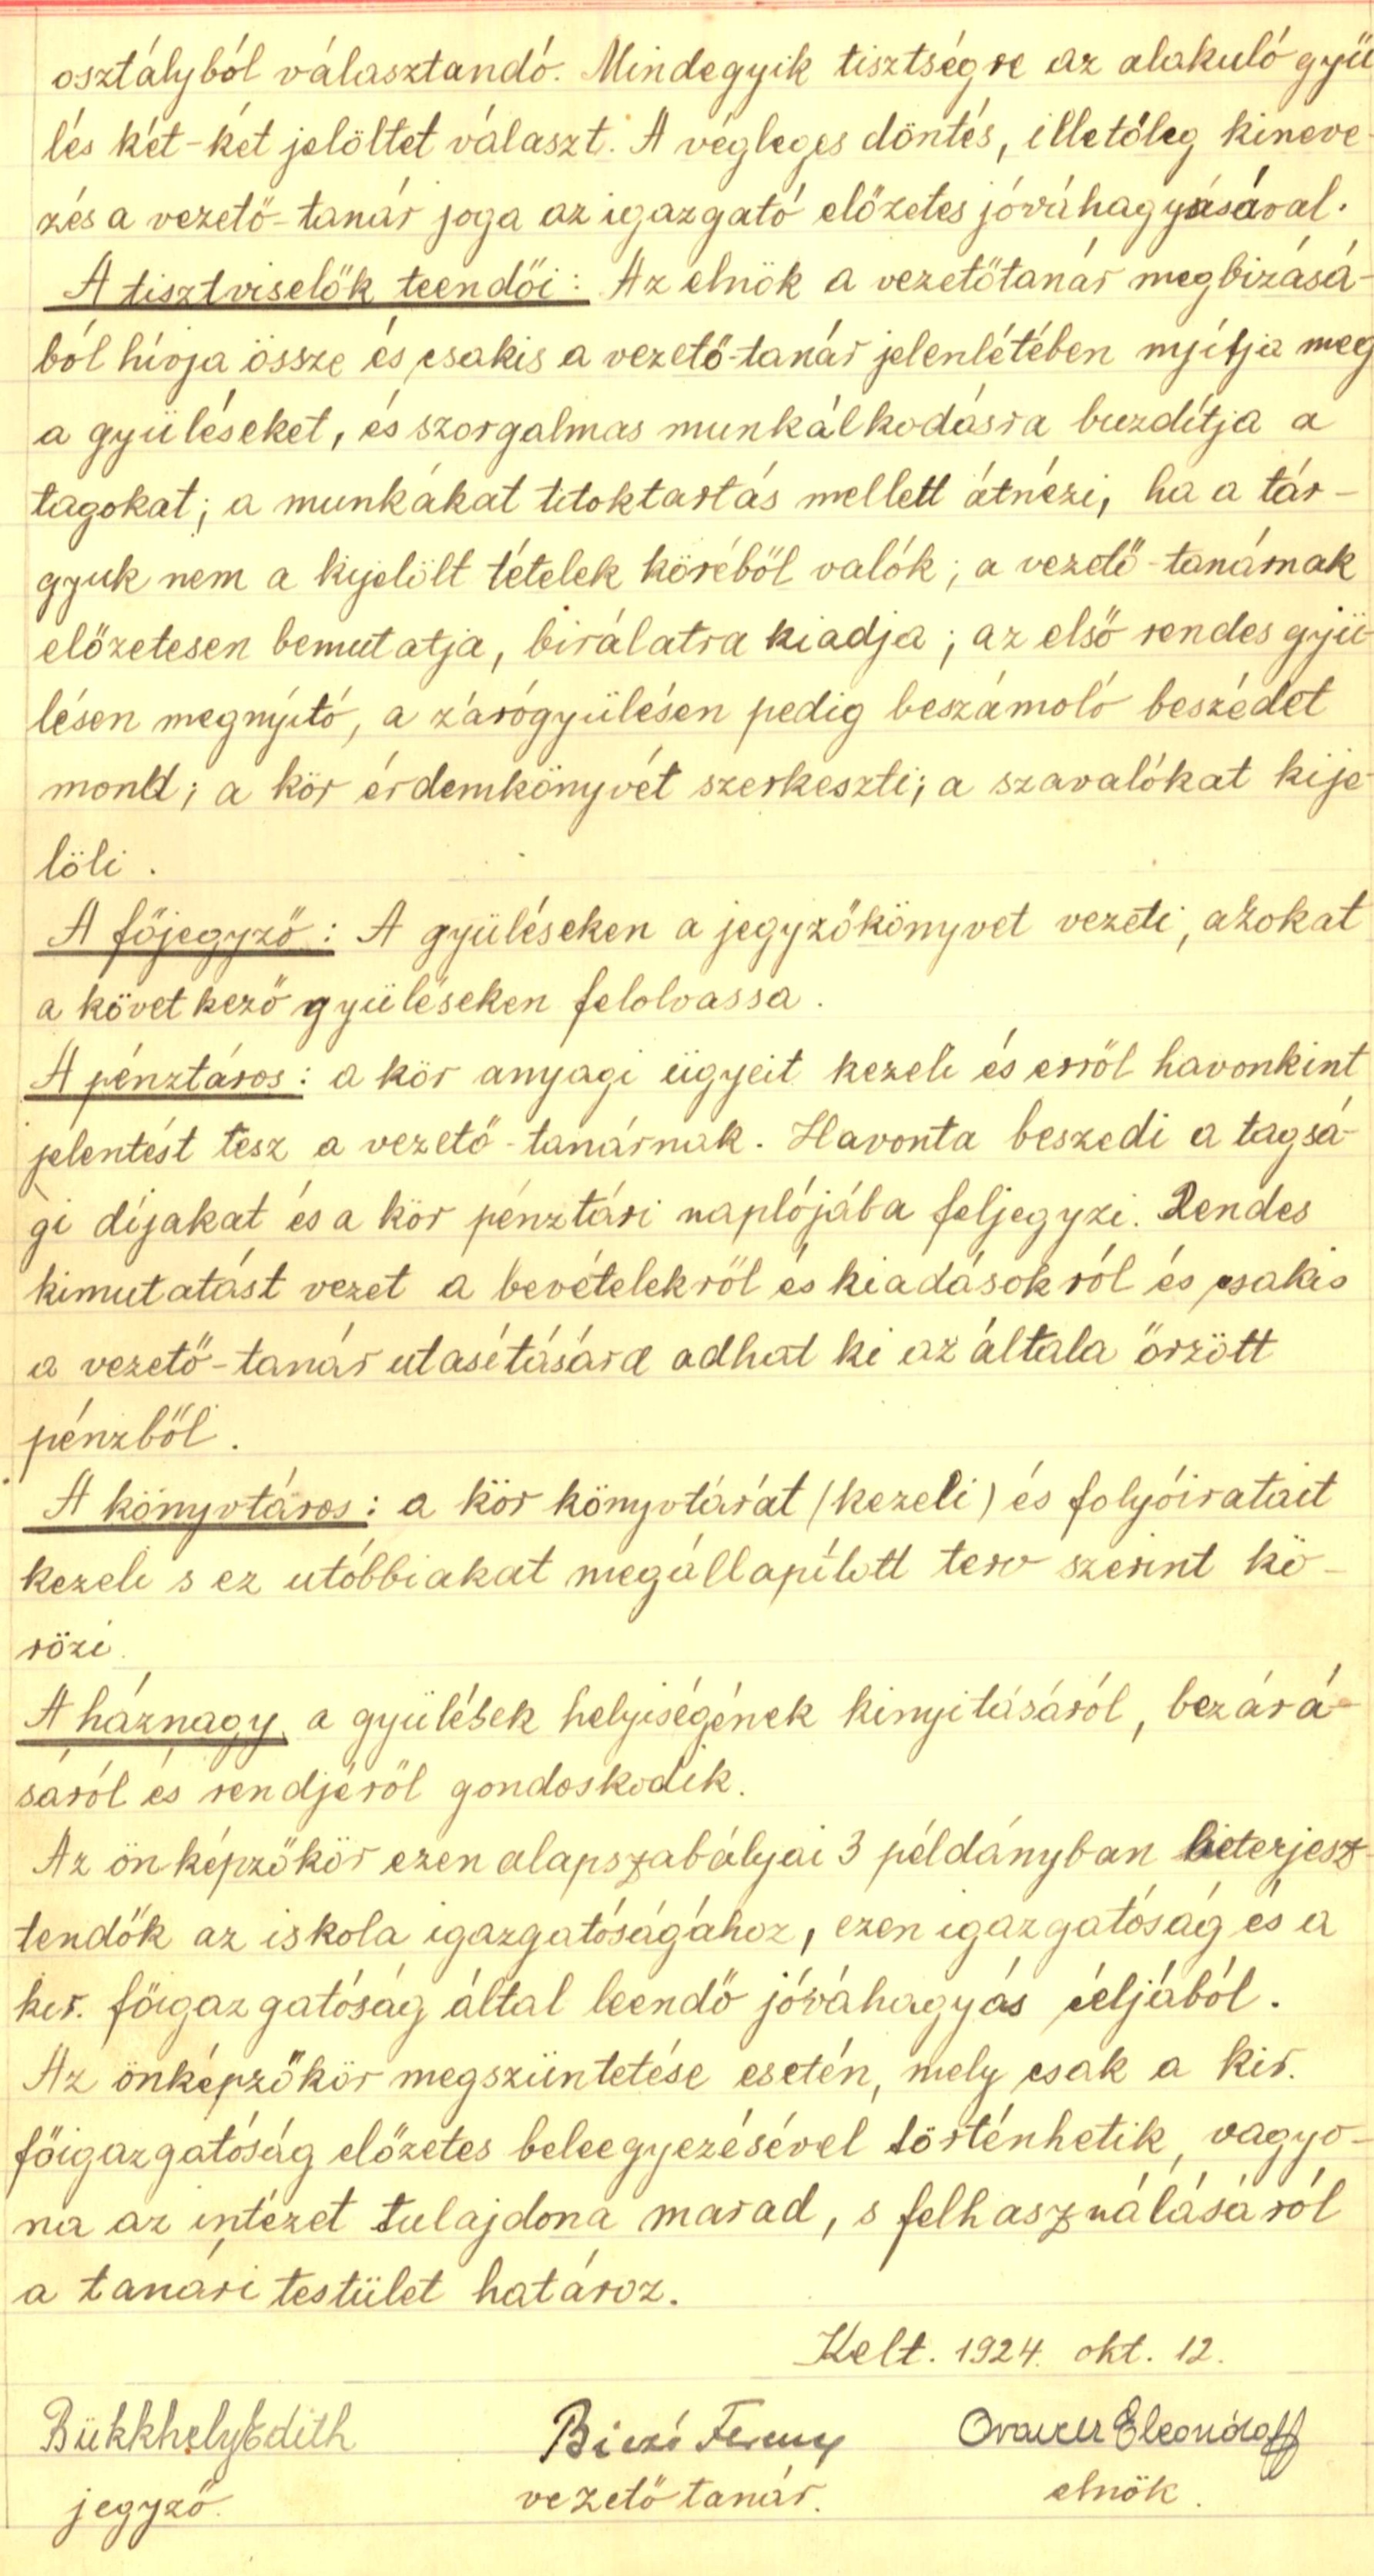 osztályból választandó. Mindegyik tisztségre az alakuló gyü
lés két-két jelöltet választ. A végleges döntés, illetőleg kineve-
zés a vezető-tanár joga az igazgató előzetes jóváhagyásával.
A tisztviselők teendői: Az elnök a vezetőtanár megbizásá-
ból hívja össze és csakis a vezető-tanár jelenlétében nyitja meg
a gyüléseket, és szorgalmas munkálkodásra buzdítja a
tagokat; a munkákat titoktartás mellett átnézi, ha a tár-
gyuk nem a kijelölt tételek köréből valók; a vezető-tanárnak
előzetesen bemutatja, birálatra kiadja; az első rendes gyü-
lésen megnyító, a zárógyülésen pedig beszámoló beszédet
mond; a kör érdemkönyvét szerkeszti; a szavalókat kije-
löli.
A főjegyző: A gyüléseken a jegyzőkönyvet vezeti, azokat
a következő gyüléseken felolvassa.
A pénztáros: a kör anyagi ügyeit kezeli és erről havonkint
jelentést tesz a vezető-tanárnak. Havonta beszedi a tagsá-
gi díjakat és a kör pénztári naplójába feljegyzi. Rendes
kimutatást vezet a bevételekről és kiadásokról és csakis
a vezető-tanár utasítására adhat ki az általa őrzött
pénzből.
A könyvtáros: a kör könyvtárát (kezeli) és folyóiratait
kezeli s ez utóbbiakat megállapított terv szerint kö-
rözi.
A háznagy a gyülések helyiségének kinyitásáról, bezárá-
sáról és rendjéről gondoskodik.
Az önképzőkör ezen alapszabályai 3 példányban beterjesz-
tendők az iskola igazgatóságához, ezen igazgatóság és a
kir. főigazgatóság által leendő jóváhagyás céljából.
Az önképzőkör megszüntetése esetén, mely csak a kir.
főigazgatóság előzetes beleegyezésével történhetik, vagyo-
na az intézet tulajdona marad, s felhasználásáról
a tanári testület határoz.
Kelt. 1924. okt. 12.
Bükkhely Edith Biczó Ferenc
jegyző. vezető tanár. elnök.